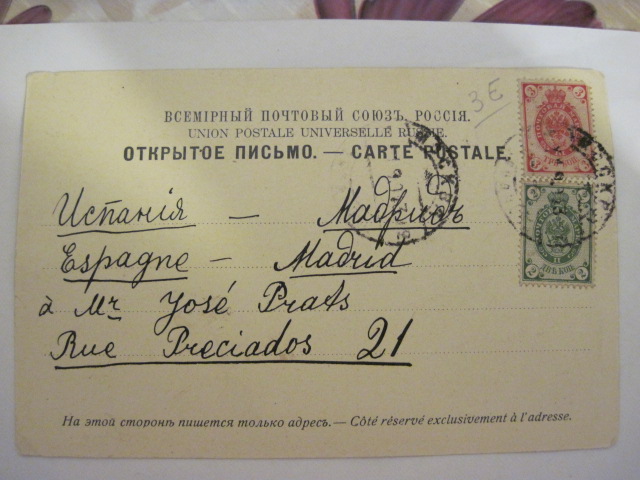 3E
ВСЕМІРНЫЙ ПОЧТОВЫЙ СОЮЗЪ. РОССІЯ.
UNION POSTALE UNIVERSELLE RUSSIE.
ОТКРЫТОЕ ПИСЬМО. — CARTE POSTALE.
3 3
2 2
Испанія — Мадридъ
Espagne — Madrid
à Mr José Prats
Rue Preciados 21
На этой сторонѣ пишется только адресъ. — Côté réservé exclusivement à l'adresse.